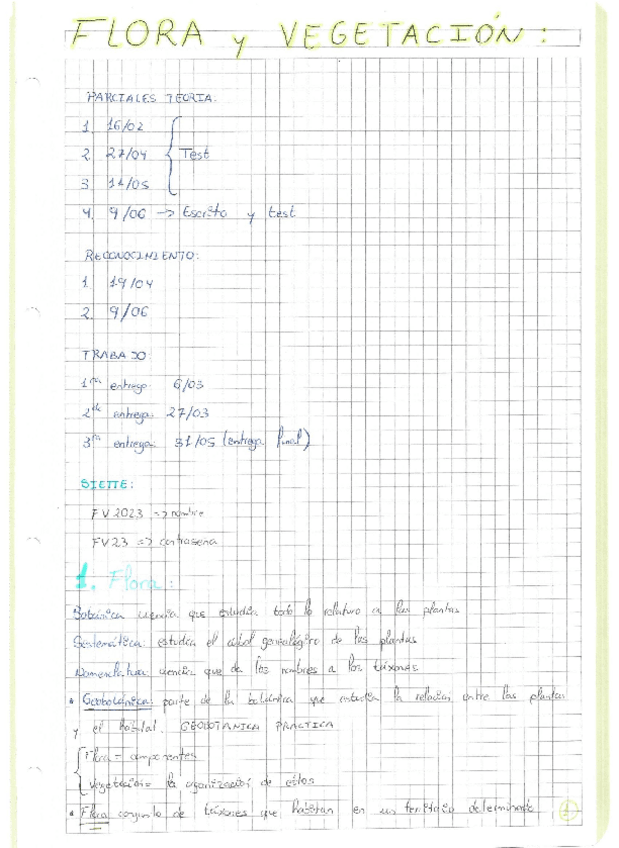 FLORA y VEGETACIÓN:
PARCIALES TEORIA:
1. 16/02
2. 27/04 Test
3. 11/05
4. 9/06 -> Escrito y test
RECONOCIMIENTO:
1. 19/04
2. 9/06
TRABAJO:
1ra entrega 6/03
2da entrega: 27/03
3ra entrega: 31/05 (entrega final)
SIETTE:
FV2023 => nombre
FV23 => contrasena
1. Flora:
Botánica ciencia que estudia todo lo relativo a las plantas
Sistemática: estudia el arbol genealógico de las plantas
Nomenclatura: ciencia que da los nombres a los táxones
• Geobotánica: parte de la botánica que estudia la relacion entre las plantas
y el habitat. GEOBOTANICA PRACTICA
Flora = componentes
Vegetación = la organización de estos
• Flora conjunto de táxones que habitan en un territorio determinado 1